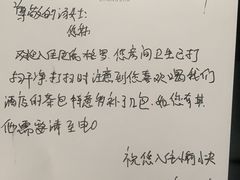 尊敬的
您好
欢迎入住 您房间卫生已打
扫干净 打扫时注意到您喜欢喝我们
酒店的茶包 特意为您补了几包 如您有其
他需要请至电
祝您入住愉快